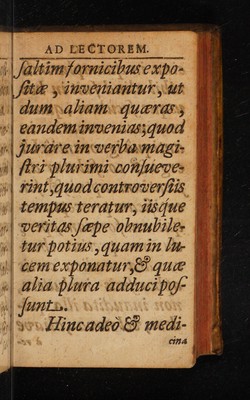 AD LECTOREM.
ſaltim fornicibus expo-
ſitæ, inveniantur, ut
dum aliam quæras,
eandem invenias; quod
jurare in verba magi-
ſtri plurimi conſueve-
rint, quod controverſiis
tempus teratur, iisque
veritas ſæpe obnubile-
tur potius, quam in lu-
cem exponatur, & quæ
alia plura adduci poſ-
ſunt.
Hinc adeo & medi-
cina